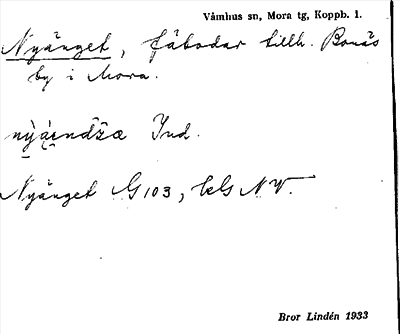 Våmhus sn, Mora tg, Koppb. l.
Nyänget, fäbodar tillh. Bonäs
by i Mora.
Ind.
Nyänget G103, bl G NV.
Bror Lindén 1933